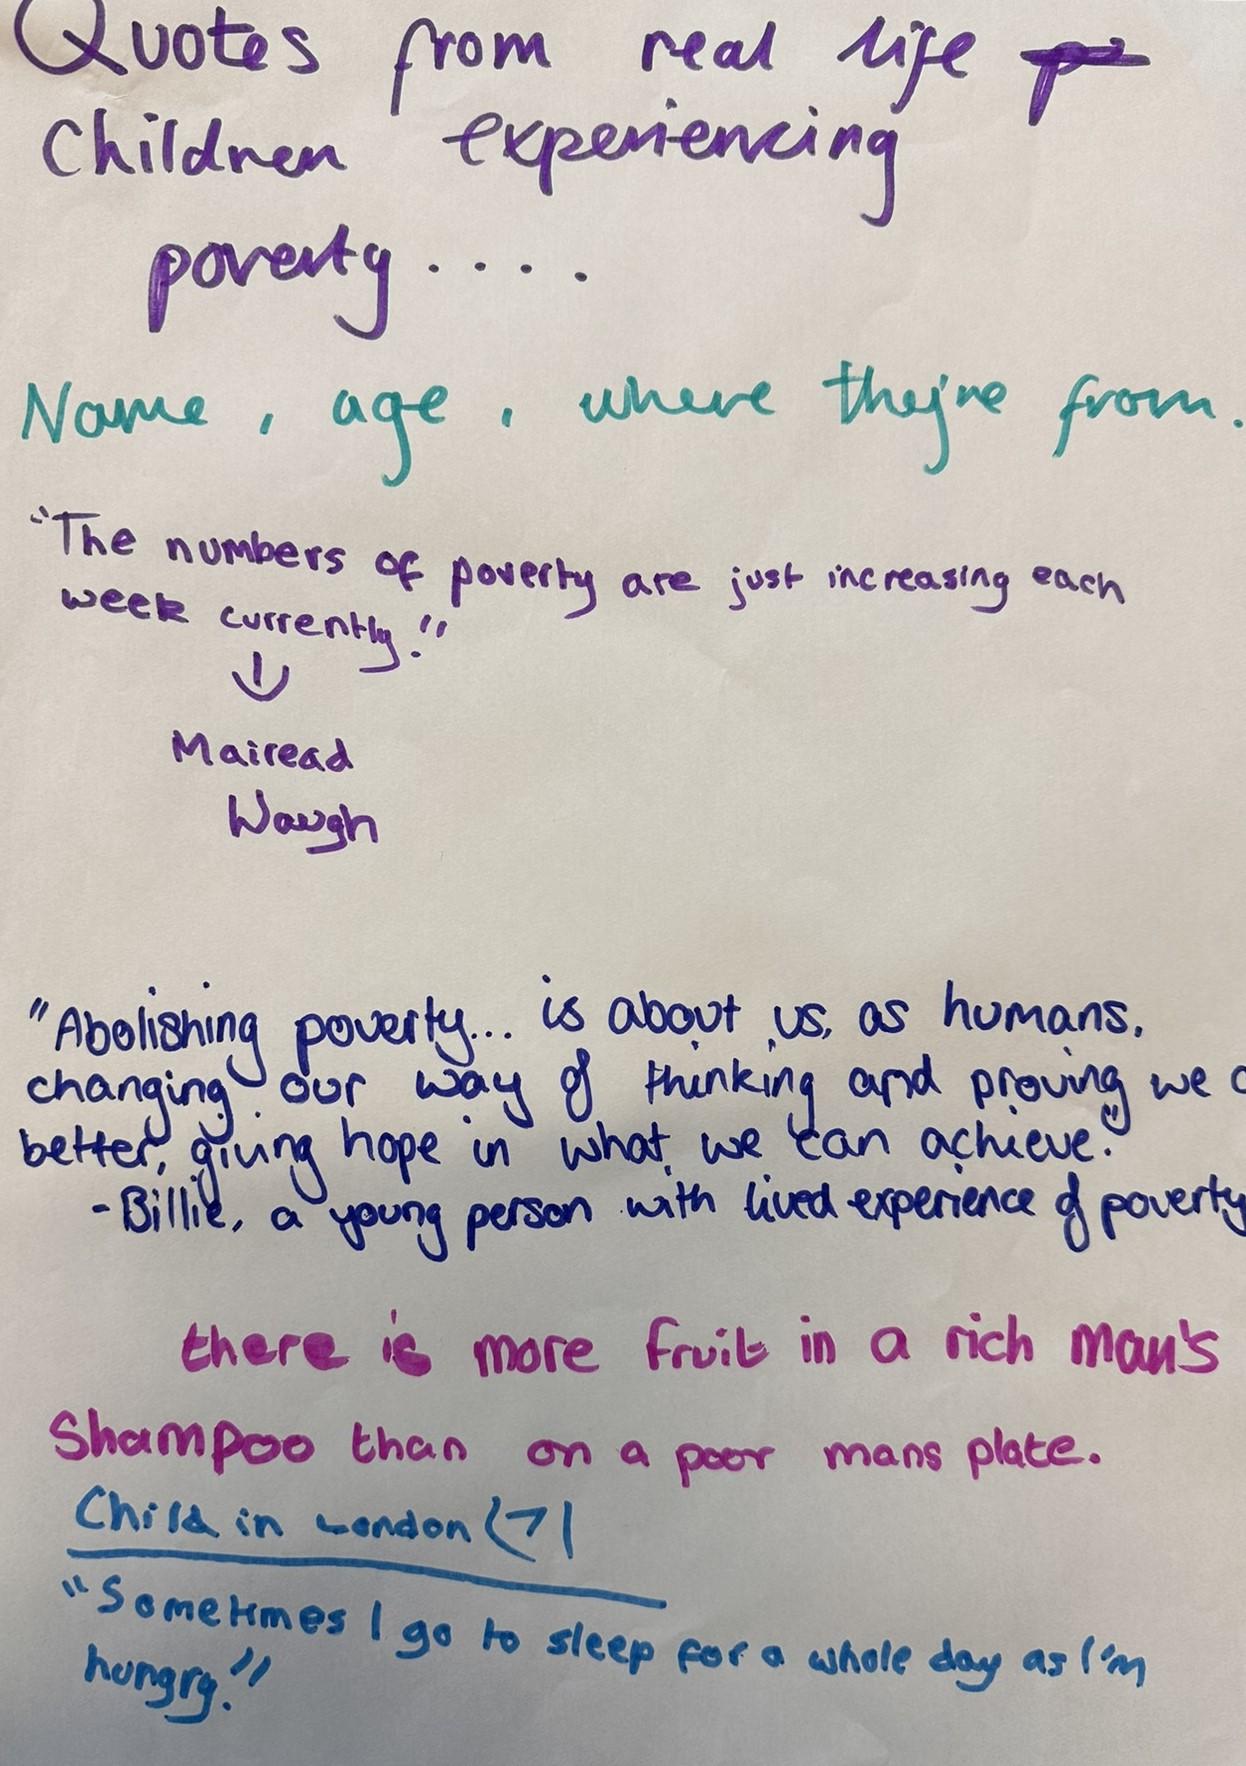 Quotes from real life
Children experiencing
poverty....
Name, age, where they're from.
"The numbers of poverty are just increasing each
week currently."
↓
Mairead
Waugh
"Abolishing poverty... is about us, as humans,
changing our way of thinking and proving we
better, giving hope in what we can achieve."
-Billie, a young person with lived experience of poverty
there is more fruit in a rich man's
Shampoo than on a poor mans plate.
Child in London (7)
"Sometimes I go to sleep for a whole day as I'm
hungry."